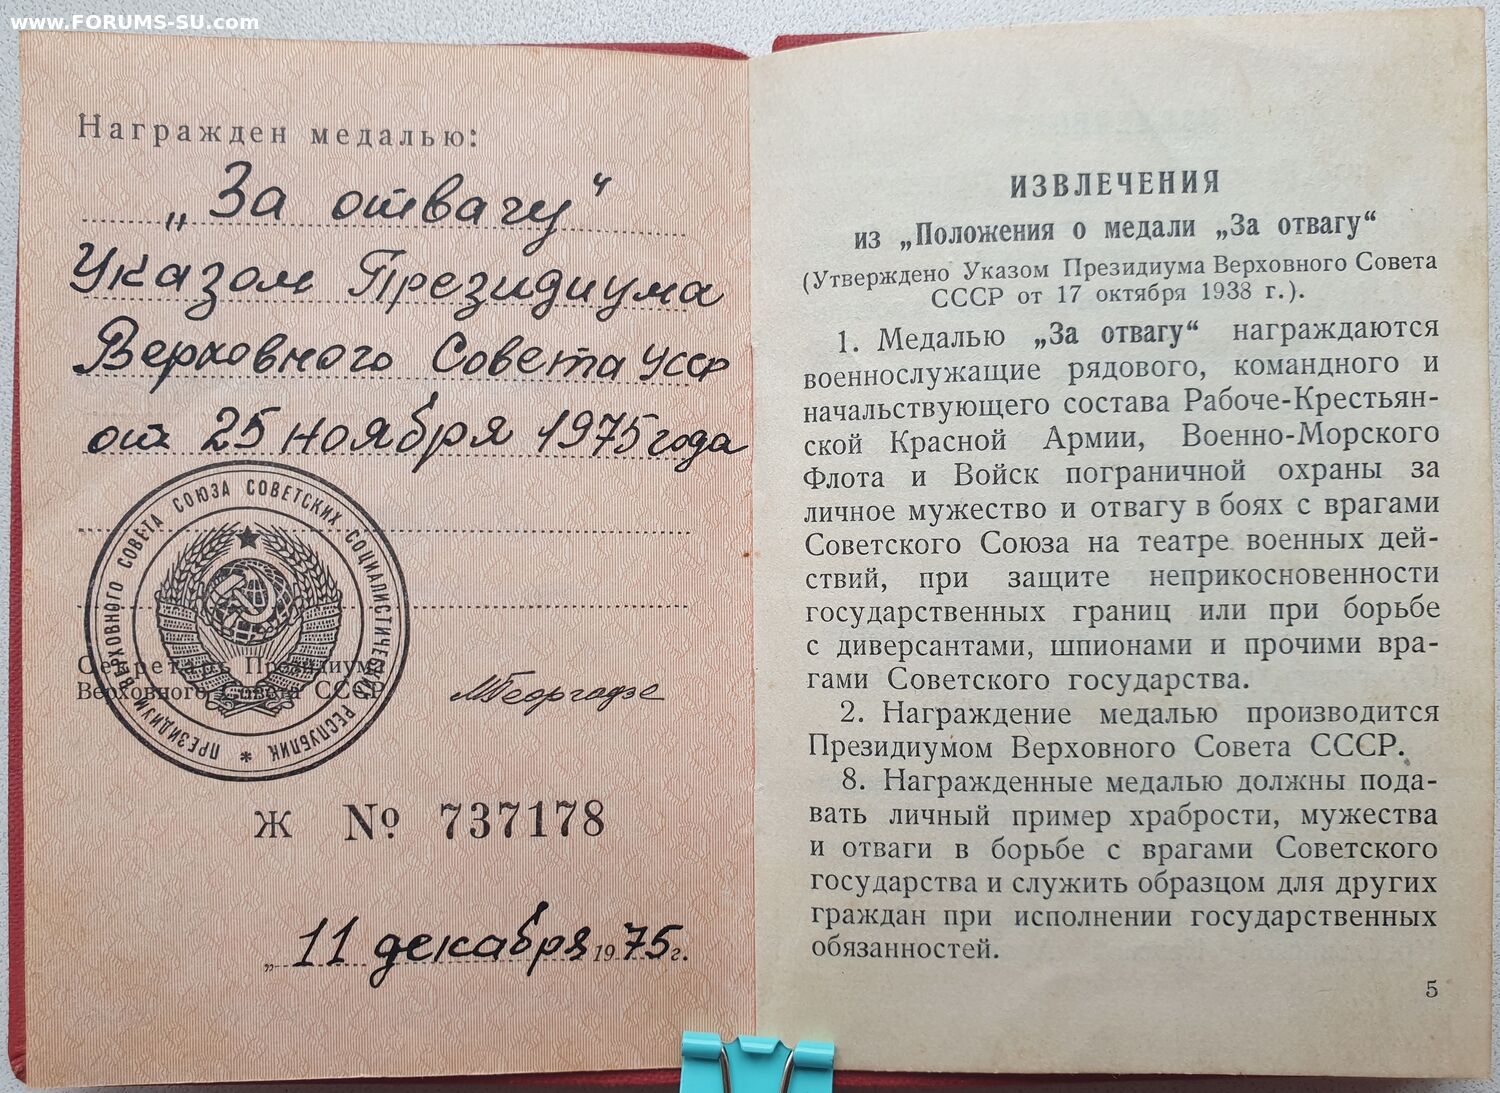 www.FORUMS-SU.com
Награжден медалью:
„За отвагу“
Указом Президиума
Верховного Совета УССР
от 25 ноября 1975 года
ПРЕЗИДИУМ ВЕРХОВНОГО СОВЕТА СОЮЗА СОВЕТСКИХ СОЦИАЛИСТИЧЕСКИХ РЕСПУБЛИК *
Секретарь Президиума
Верховного Совета СССР
МГеоргадзе
Ж № 737178
„11 декабря 1975 г.
ИЗВЛЕЧЕНИЯ
из „Положения о медали „За отвагу“
(Утверждено Указом Президиума Верховного Совета
СССР от 17 октября 1938 г.).
1. Медалью „За отвагу“ награждаются
военнослужащие рядового, командного и
начальствующего состава Рабоче-Крестьян-
ской Красной Армии, Военно-Морского
Флота и Войск пограничной охраны за
личное мужество и отвагу в боях с врагами
Советского Союза на театре военных дей-
ствий, при защите неприкосновенности
государственных границ или при борьбе
с диверсантами, шпионами и прочими вра-
гами Советского государства.
2. Награждение медалью производится
Президиумом Верховного Совета СССР.
8. Награжденные медалью должны пода-
вать личный пример храбрости, мужества
и отваги в борьбе с врагами Советского
государства и служить образцом для других
граждан при исполнении государственных
обязанностей.
5